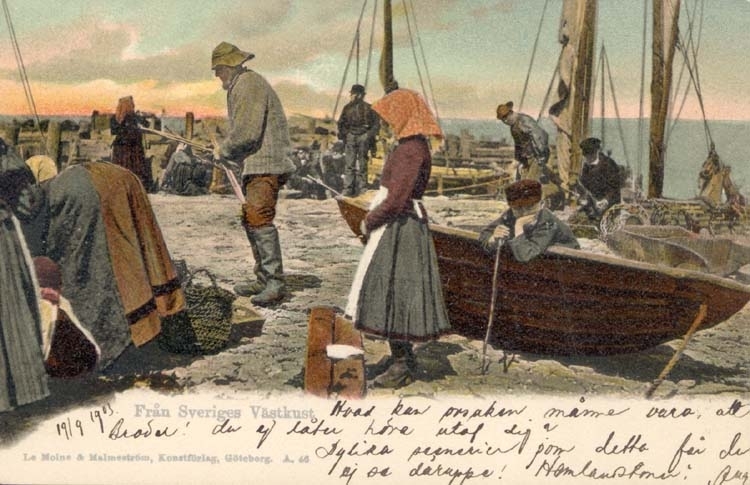 Från Sveriges Västkust
19/9 1903.
Hvad kan orsaken månne vara, att
Broder! du ej låter höra utaf dig?
Le Moine & Malmeström, Konstförlag, Göteborg. A. 46
Dylika scenerier som detta får du
ej se däruppe!